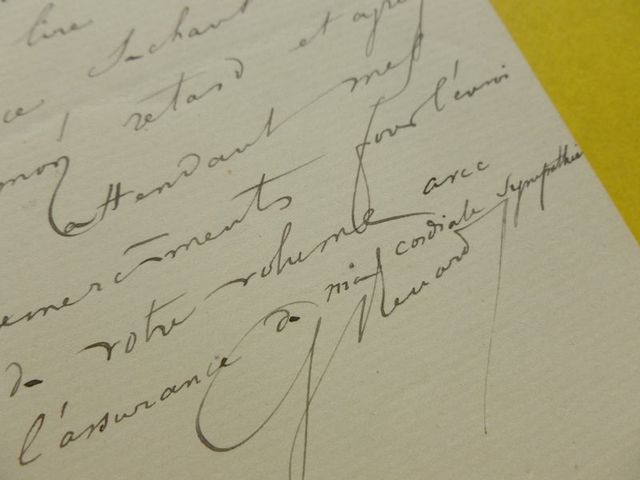 lire
ce chant
mon retard et agré
attendant mes
remerciments pour l'envoi
de votre volume avec
l'assurance de ma cordiale sympathie
J Renard